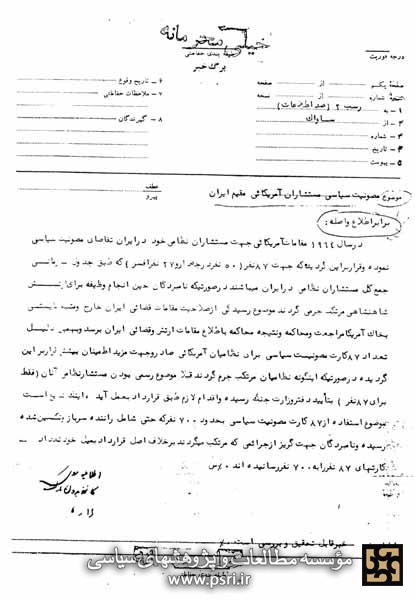 خیلی محرمانه
طبقه بندی حفاظتی
برگ خبر
درجه فوریت
صفحه یکم از صفحه
نسخه شماره از نسخه
۱ - به رسب ۲ ( ضد اطلاعات )
۲ - از ساواک
۳ - شماره
۴ - تاریخ
۵ - پیوست
۶ - تاریخ وقوع
۷ - ملاحظات حفاظتی
۸ - گیرندگان
موضوع مصونیت سیاسی مستشاران آمریکائی مقیم ایران
عطف
پیرو
برابر اطلاع واصله :
در سال ۱۹۶۴ مقامات آمریکائی جهت مستشاران نظامی خود در ایران تقاضای مصونیت سیاسی
نموده و قرار بر این گردیده که جهت ۸۷ نفر ( ۵۰ نفر درجه دار و ۲۷ نفر افسر ) که طبق جدول
جمع کل مستشاران نظامی در ایران میباشند در صورتیکه نامبردگان حین انجام وظیفه برای
شاهنشاهی مرتکب جرمی گردند موضوع رسیدگی از صلاحیت مقامات قضائی ایران خارج و متهم بایستی
بخاک آمریکا مراجعت و محاکمه و نتیجه محاکمه باطلاع مقامات ارتش و قضائی ایران برسد و بهمین دلیل
تعداد ۸۷ کارت مصونیت سیاسی برای نظامیان آمریکائی صادر و جهت مزید اطمینان بیشتر قرار بر این
گردیده در صورتیکه اینگونه نظامیان مرتکب جرم گردند قبلا موضوع رسمی بودن مستشار نظامی آنان ( فقط
برای ۸۷ نفر ) بتأیید دفتر وزارت جنگ رسیده و اقدام لازم طبق قرارداد بعمل آید
موضوع استفاده از ۸۷ کارت مصونیت سیاسی بحدود ۷۰۰ نفر که حتی شامل راننده سرباز و تکنسین شده
رسیده و نامبردگان جهت گریز از جرائمی که مرتکب میگردند برخلاف اصل قرارداد بعمل خود
کارتهای ۸۷ نفر را به ۷۰۰ نفر رسانیده اند
غیر قابل تحقیق و بررسی است
مؤسسه مطالعات و پژوهشهای سیاسی
www.psri.ir